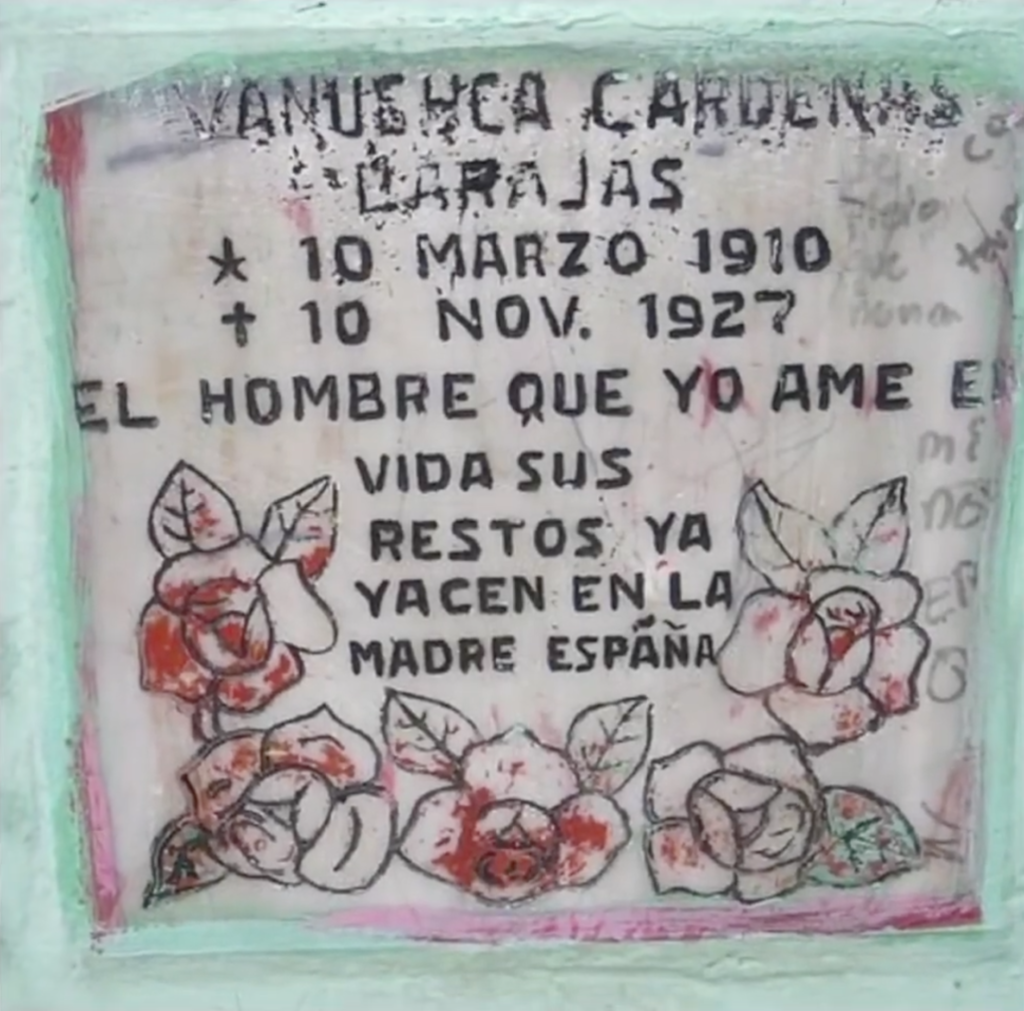 VANUEHCA CARDENAS
BARAJAS
★ 10 MARZO 1910
✝ 10 NOV. 1927
EL HOMBRE QUE YO AME EN
VIDA SUS
RESTOS YA
YACEN EN LA
MADRE ESPAÑA